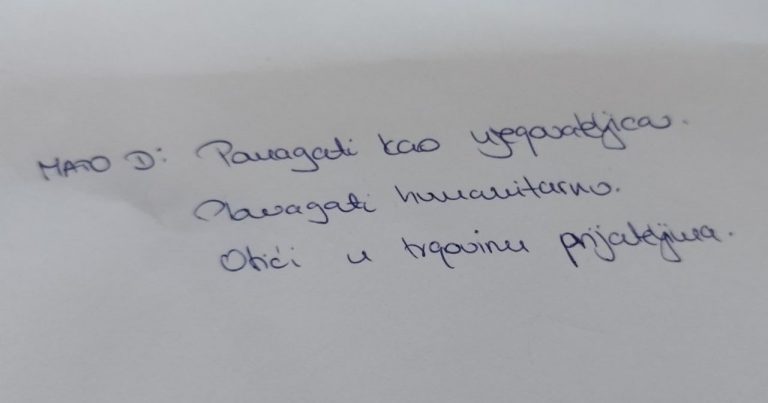 MATO D: Pomagati kao njegovateljica.
Pomagati humanitarno.
Otići u trgovinu prijateljima.